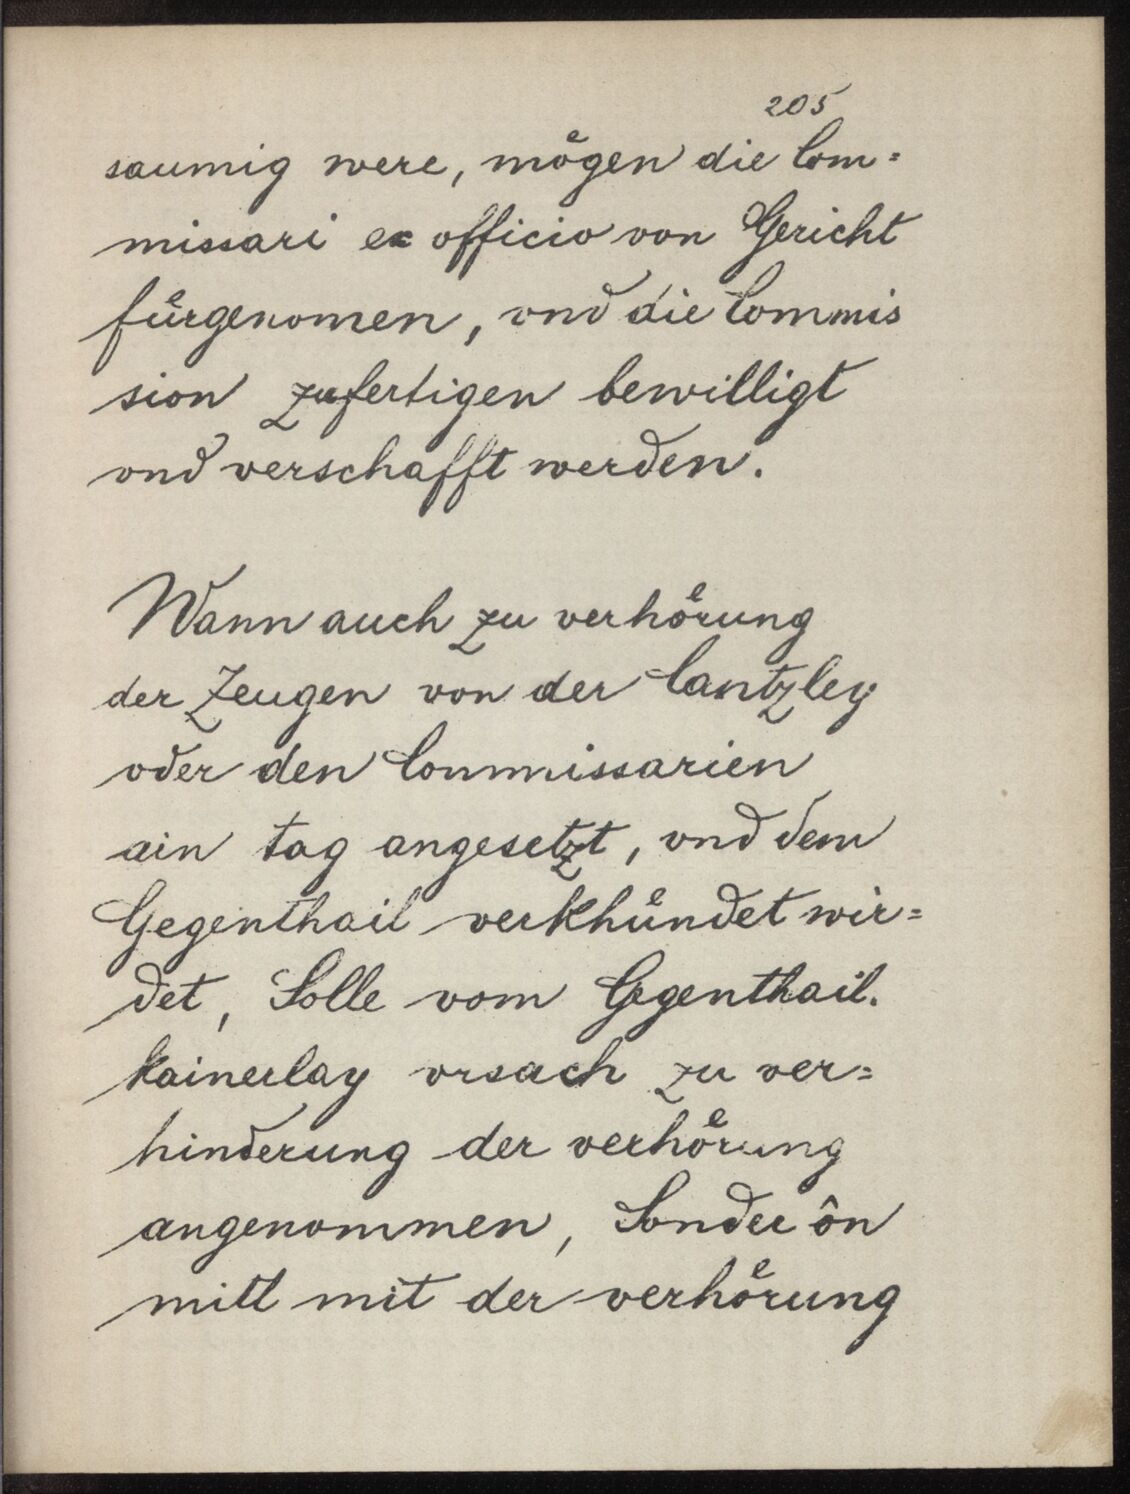 205
saumig were, mögen die Com=
missari ex officio von Gericht
fürgenomen, vnd die Commis
sion zufertigen bewilligt
vnd verschafft werden.
Wann auch zu verhörung
der Zeugen von der Cantzley
oder den Commissarien
ain tag angesetzt, vnd dem
Gegenthail verkhündet wir=
det, Solle vom Gegenthail.
kainerlay vrsach zu ver=
hinderung der verhörung
angenommen, Sonder ôn
mitl mit der verhörung